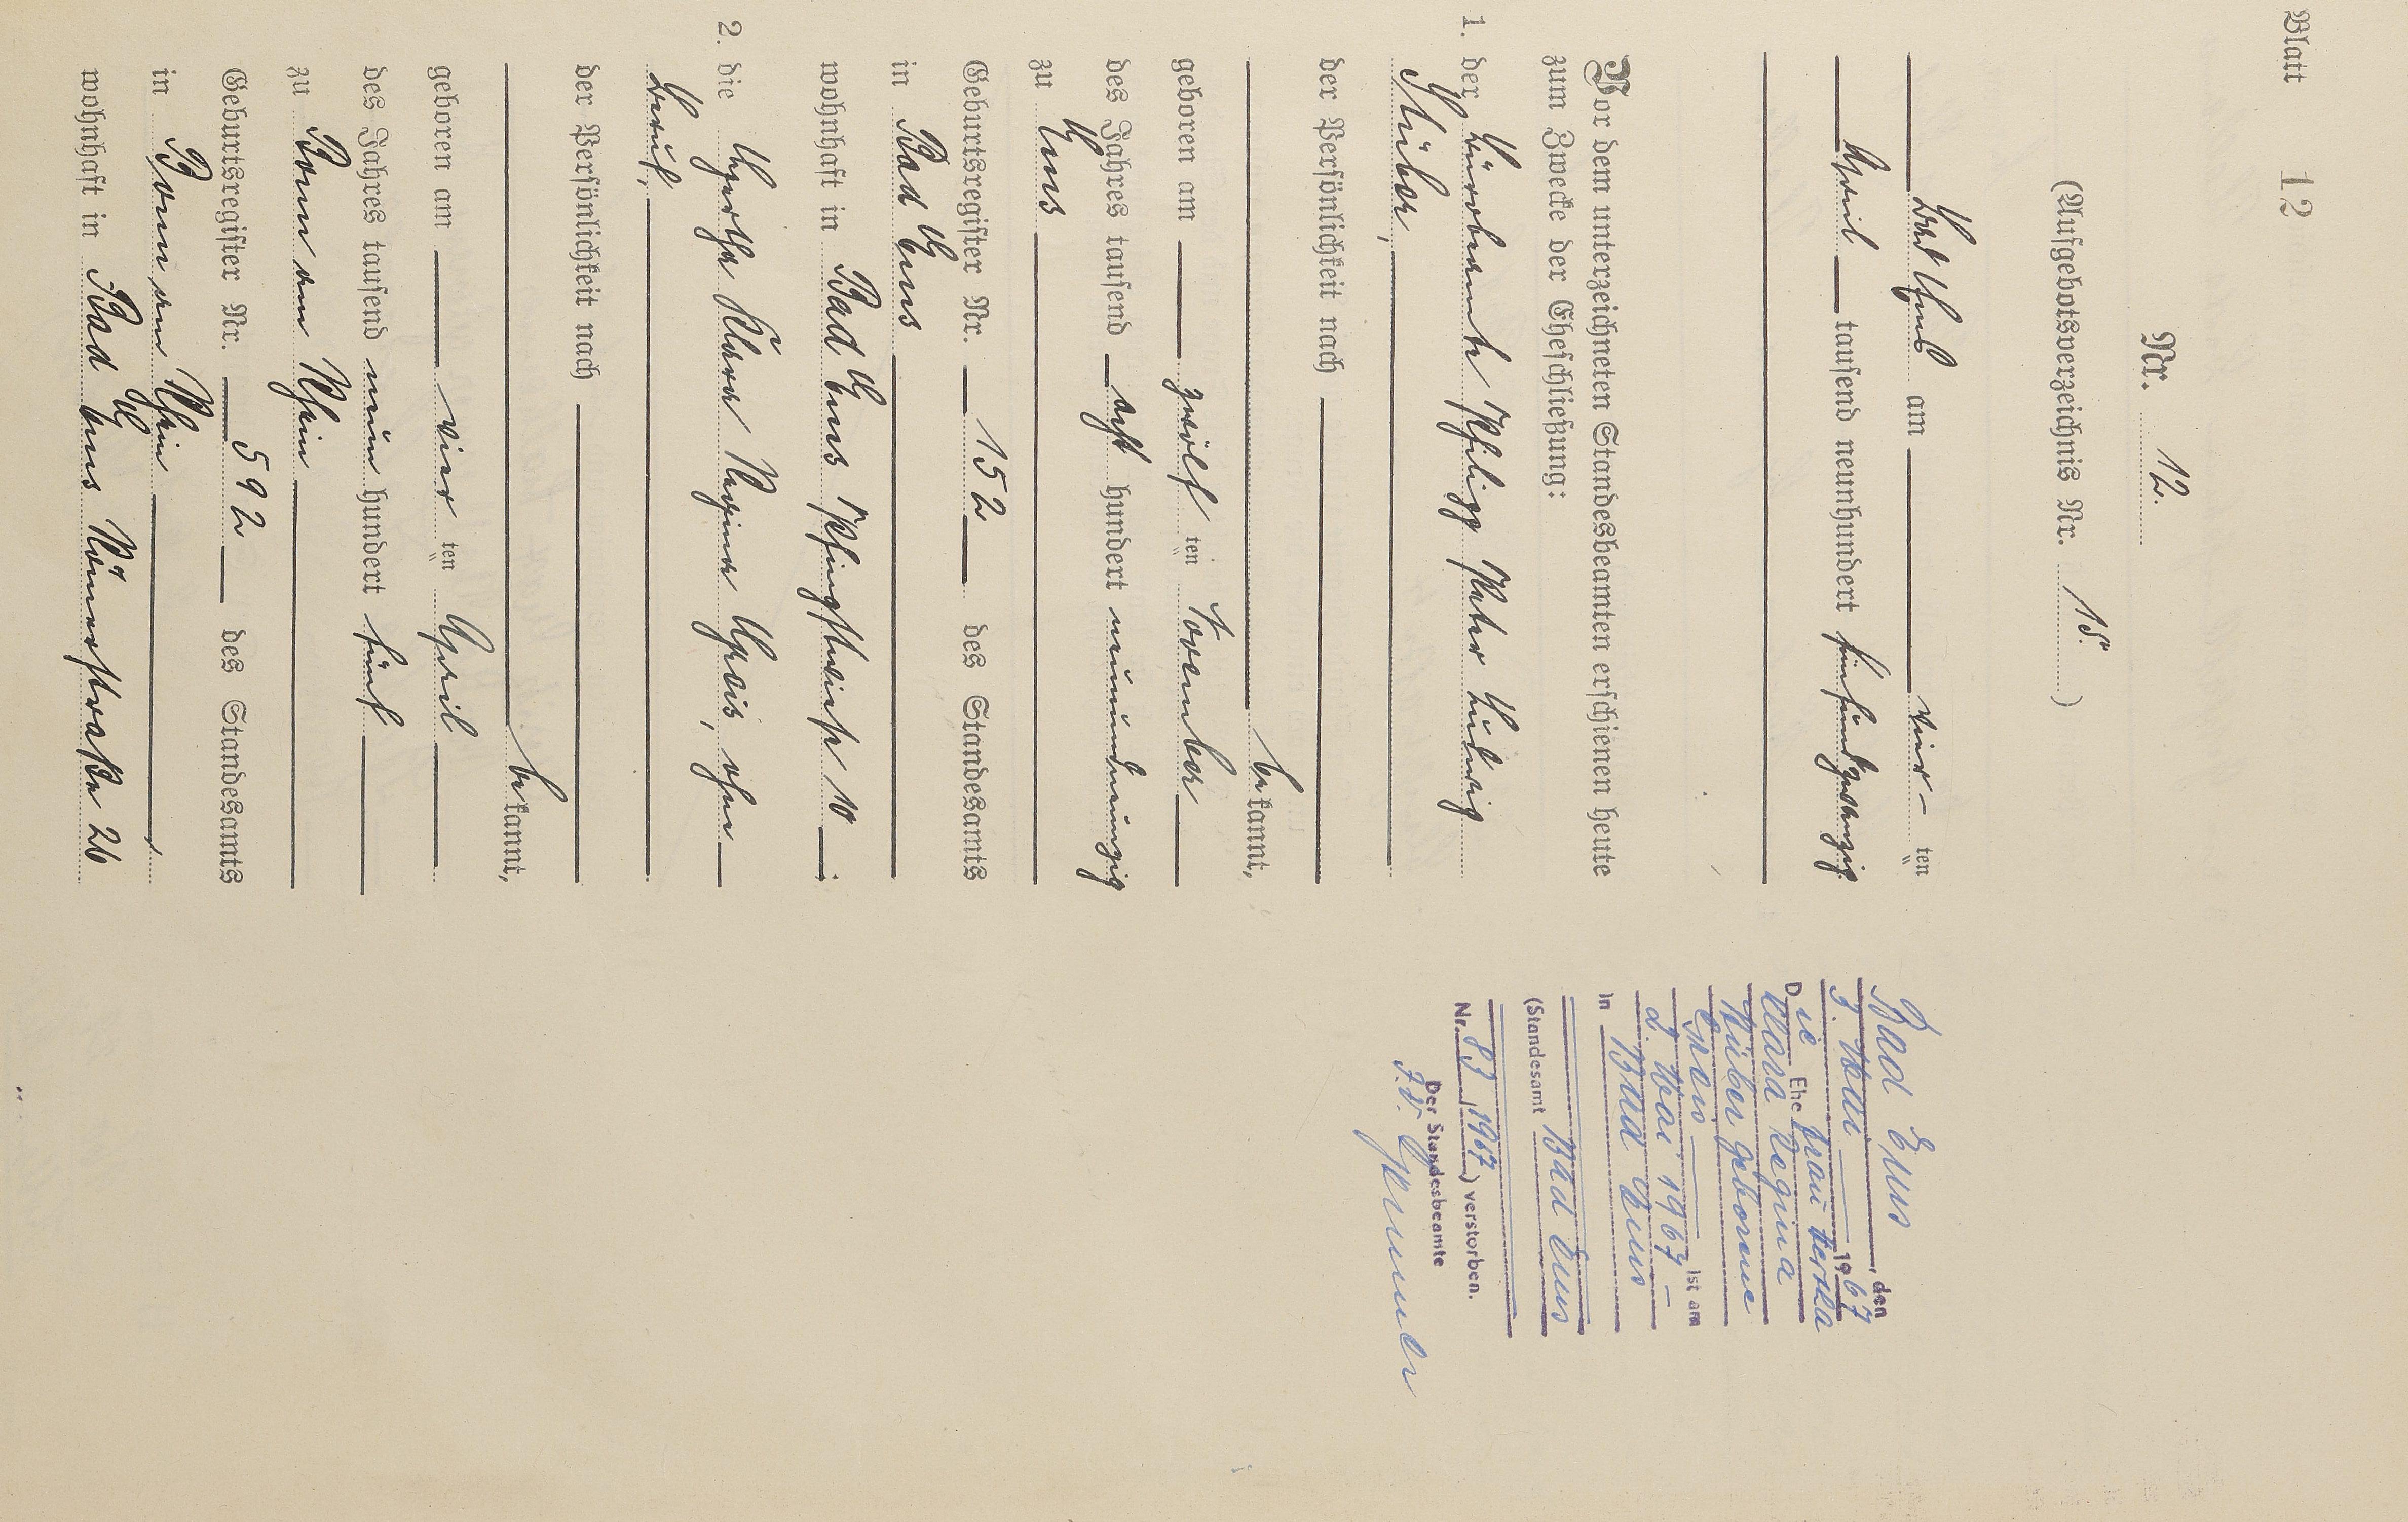 Blatt 12
Nr. 12.
(Aufgebotsverzeichnis Nr. 15.)
Bad Ems am vier- ten
April tausend neunhundert fünfundzwanzig.
Vor dem unterzeichneten Standesbeamten erschienen heute
zum Zwecke der Eheschließung:
1. der Büroбеamte Philipp Peter Ludwig
Stüber,
der Persönlichkeit nach
bekannt,
geboren am zwölf ten November
des Jahres tausend acht hundert neunundneunzig
zu Ems
Geburtsregister Nr. 152 des Standesamts
in Bad Ems
wohnhaft in Bad Ems Pfingstwiese 10;
2. die Hertha Klara Regina Speis, ohne
Beruf,
der Persönlichkeit nach
bekannt,
geboren am vier ten April
des Jahres tausend neun hundert fünf
zu Bonn am Rhein
Geburtsregister Nr. 592 des Standesamts
in Bonn am Rhein,
wohnhaft in Bad Ems Römerstraße 26
Bad Ems, den
3. Mai 1967
Die Ehefrau Hertha
Klara Regina
Stüber geborene
Speis ist am
2. Mai 1967
in Bad Ems
(Standesamt Bad Ems
Nr. 83/1967) verstorben.
Der Standesbeamte
I.V.